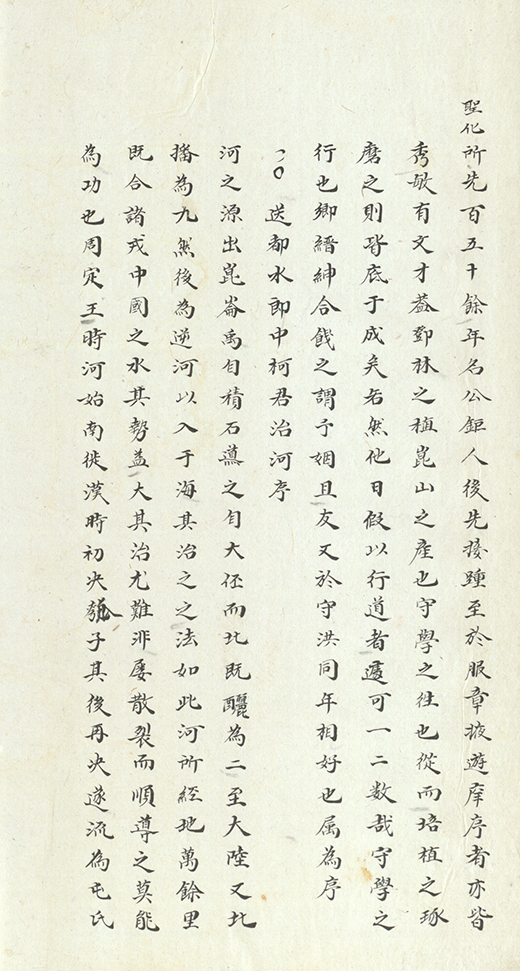 聖化所先百五十餘年名公鉅人後先接踵至於服章掖遊庠序者亦皆
秀敏有文才葢鄧林之植崑山之産也守學之往也從而培植之琢
磨之則皆底于成矣若然他日假以行道者遽可一二數哉守學之
行也鄉縉紳合餞之謂予姻且友又於守洪同年相好也屬為序
送都水郎中柯君治河序
河之源出崑崙禹自積石導之自大伾而北既釃為二至大陸又北
播為九然後為逆河以入于海其治之之法如此河所經地萬餘里
既合諸戎中國之水其勢益大其治尤難非屡散裂而順導之莫能
為功也周定王時河始南徙漢時初決瓠子其後再決遂流為屯氏